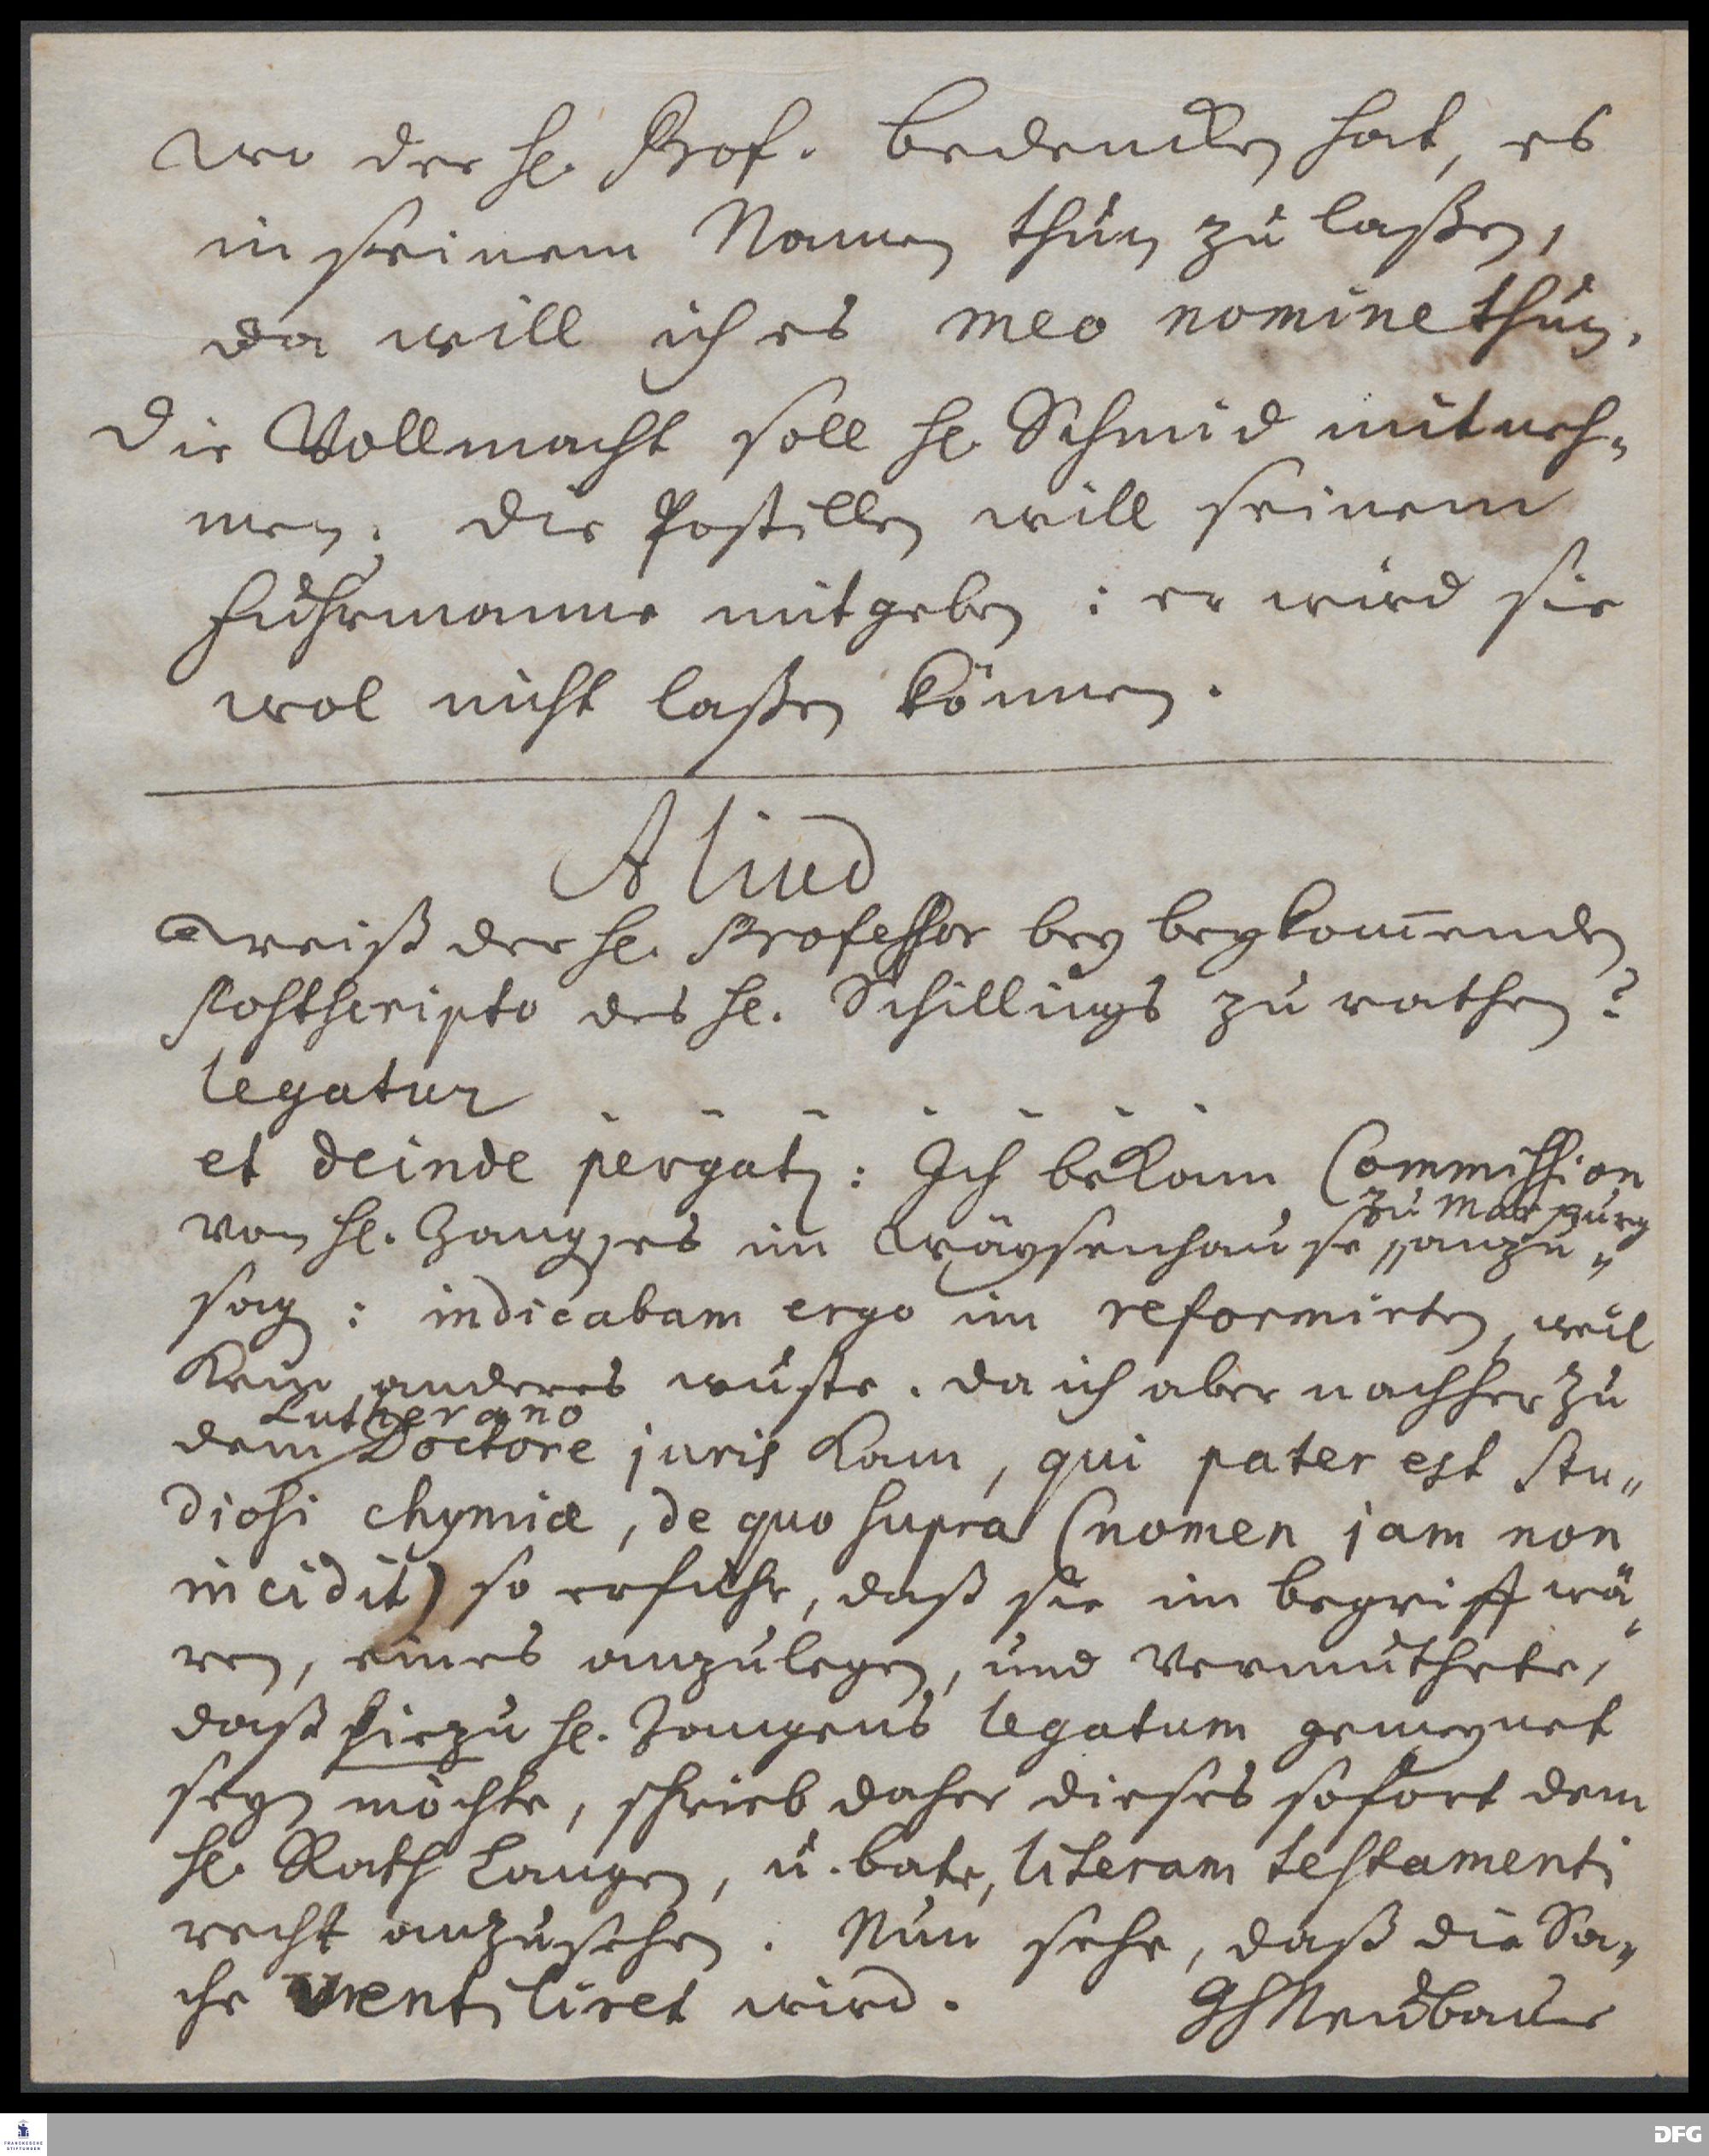 wo der H. Prof. bedencken hat, es
in seinem Namen thun zu laßen,
da will ich es meo nomine thun.
Die Vollmacht soll H. Schmid mitneh-
men. Die Postillen will seinem
Fuhrmanne mitgeben: er wird sie
wol nicht laßen können.
Aliud
weiß der H. Professor bey beykom̄enden
Postscripto des H. Schillings zu rathen?
legatur - - - - - - -
et deinde pergatz: Ich bekam Commission
zu Marpurg
von H. Zangen es im Wäysenhause anzu-
sagen: indicabam ergo im reformirten, weil
kein anderes wuste. da ich aber nachher zu
Lutherano
dem Doctore juris kam, qui pater est stu-
diosi chymiæ, de quo supra (nomen jam non
incidit) so erfuhr, daß sie im begriff wä-
ren, eines anzulegen, und vermuthete,
daß hiezu H. Zangens legatum gemeynet
seyn möchte, schrieb daher dieses sofort dem
H. Rath Langen, u. bate, literam testamenti
recht anzusehen. Nun sehe, daß die Sa-
che ventiliret wird. GHNeubauer
FRANCKESCHE
STIFTUNGEN
DFG